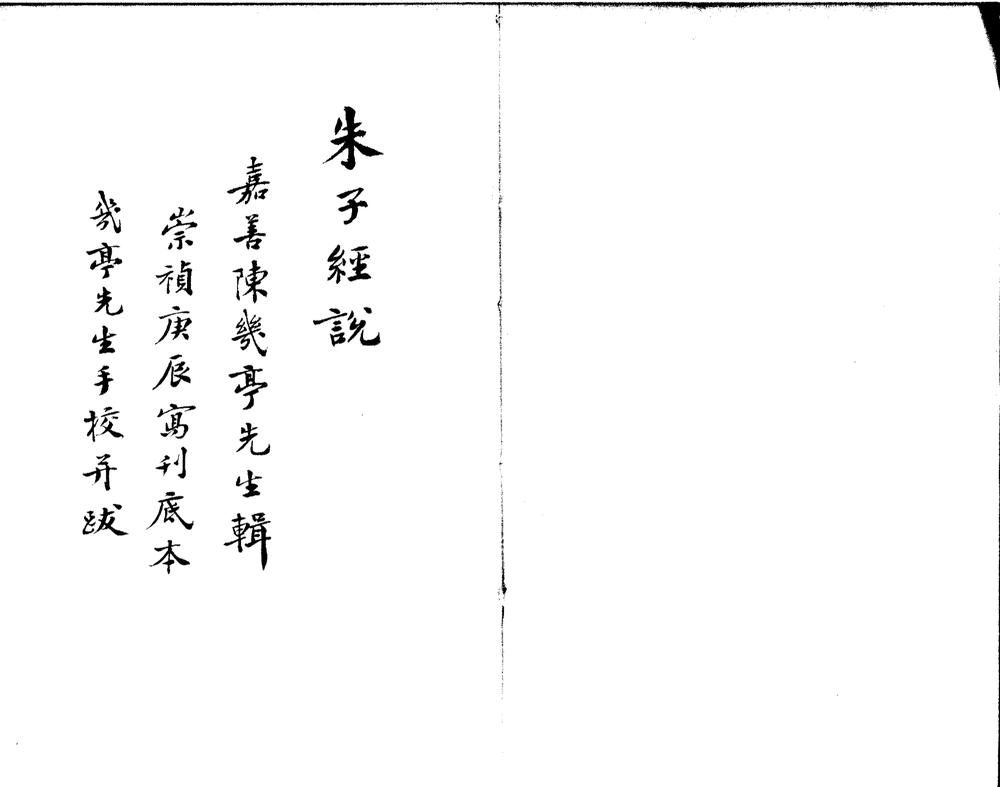 朱子經說
嘉善陳幾亭先生輯
崇禎庚辰寫刊底本
幾亭先生手校并跋